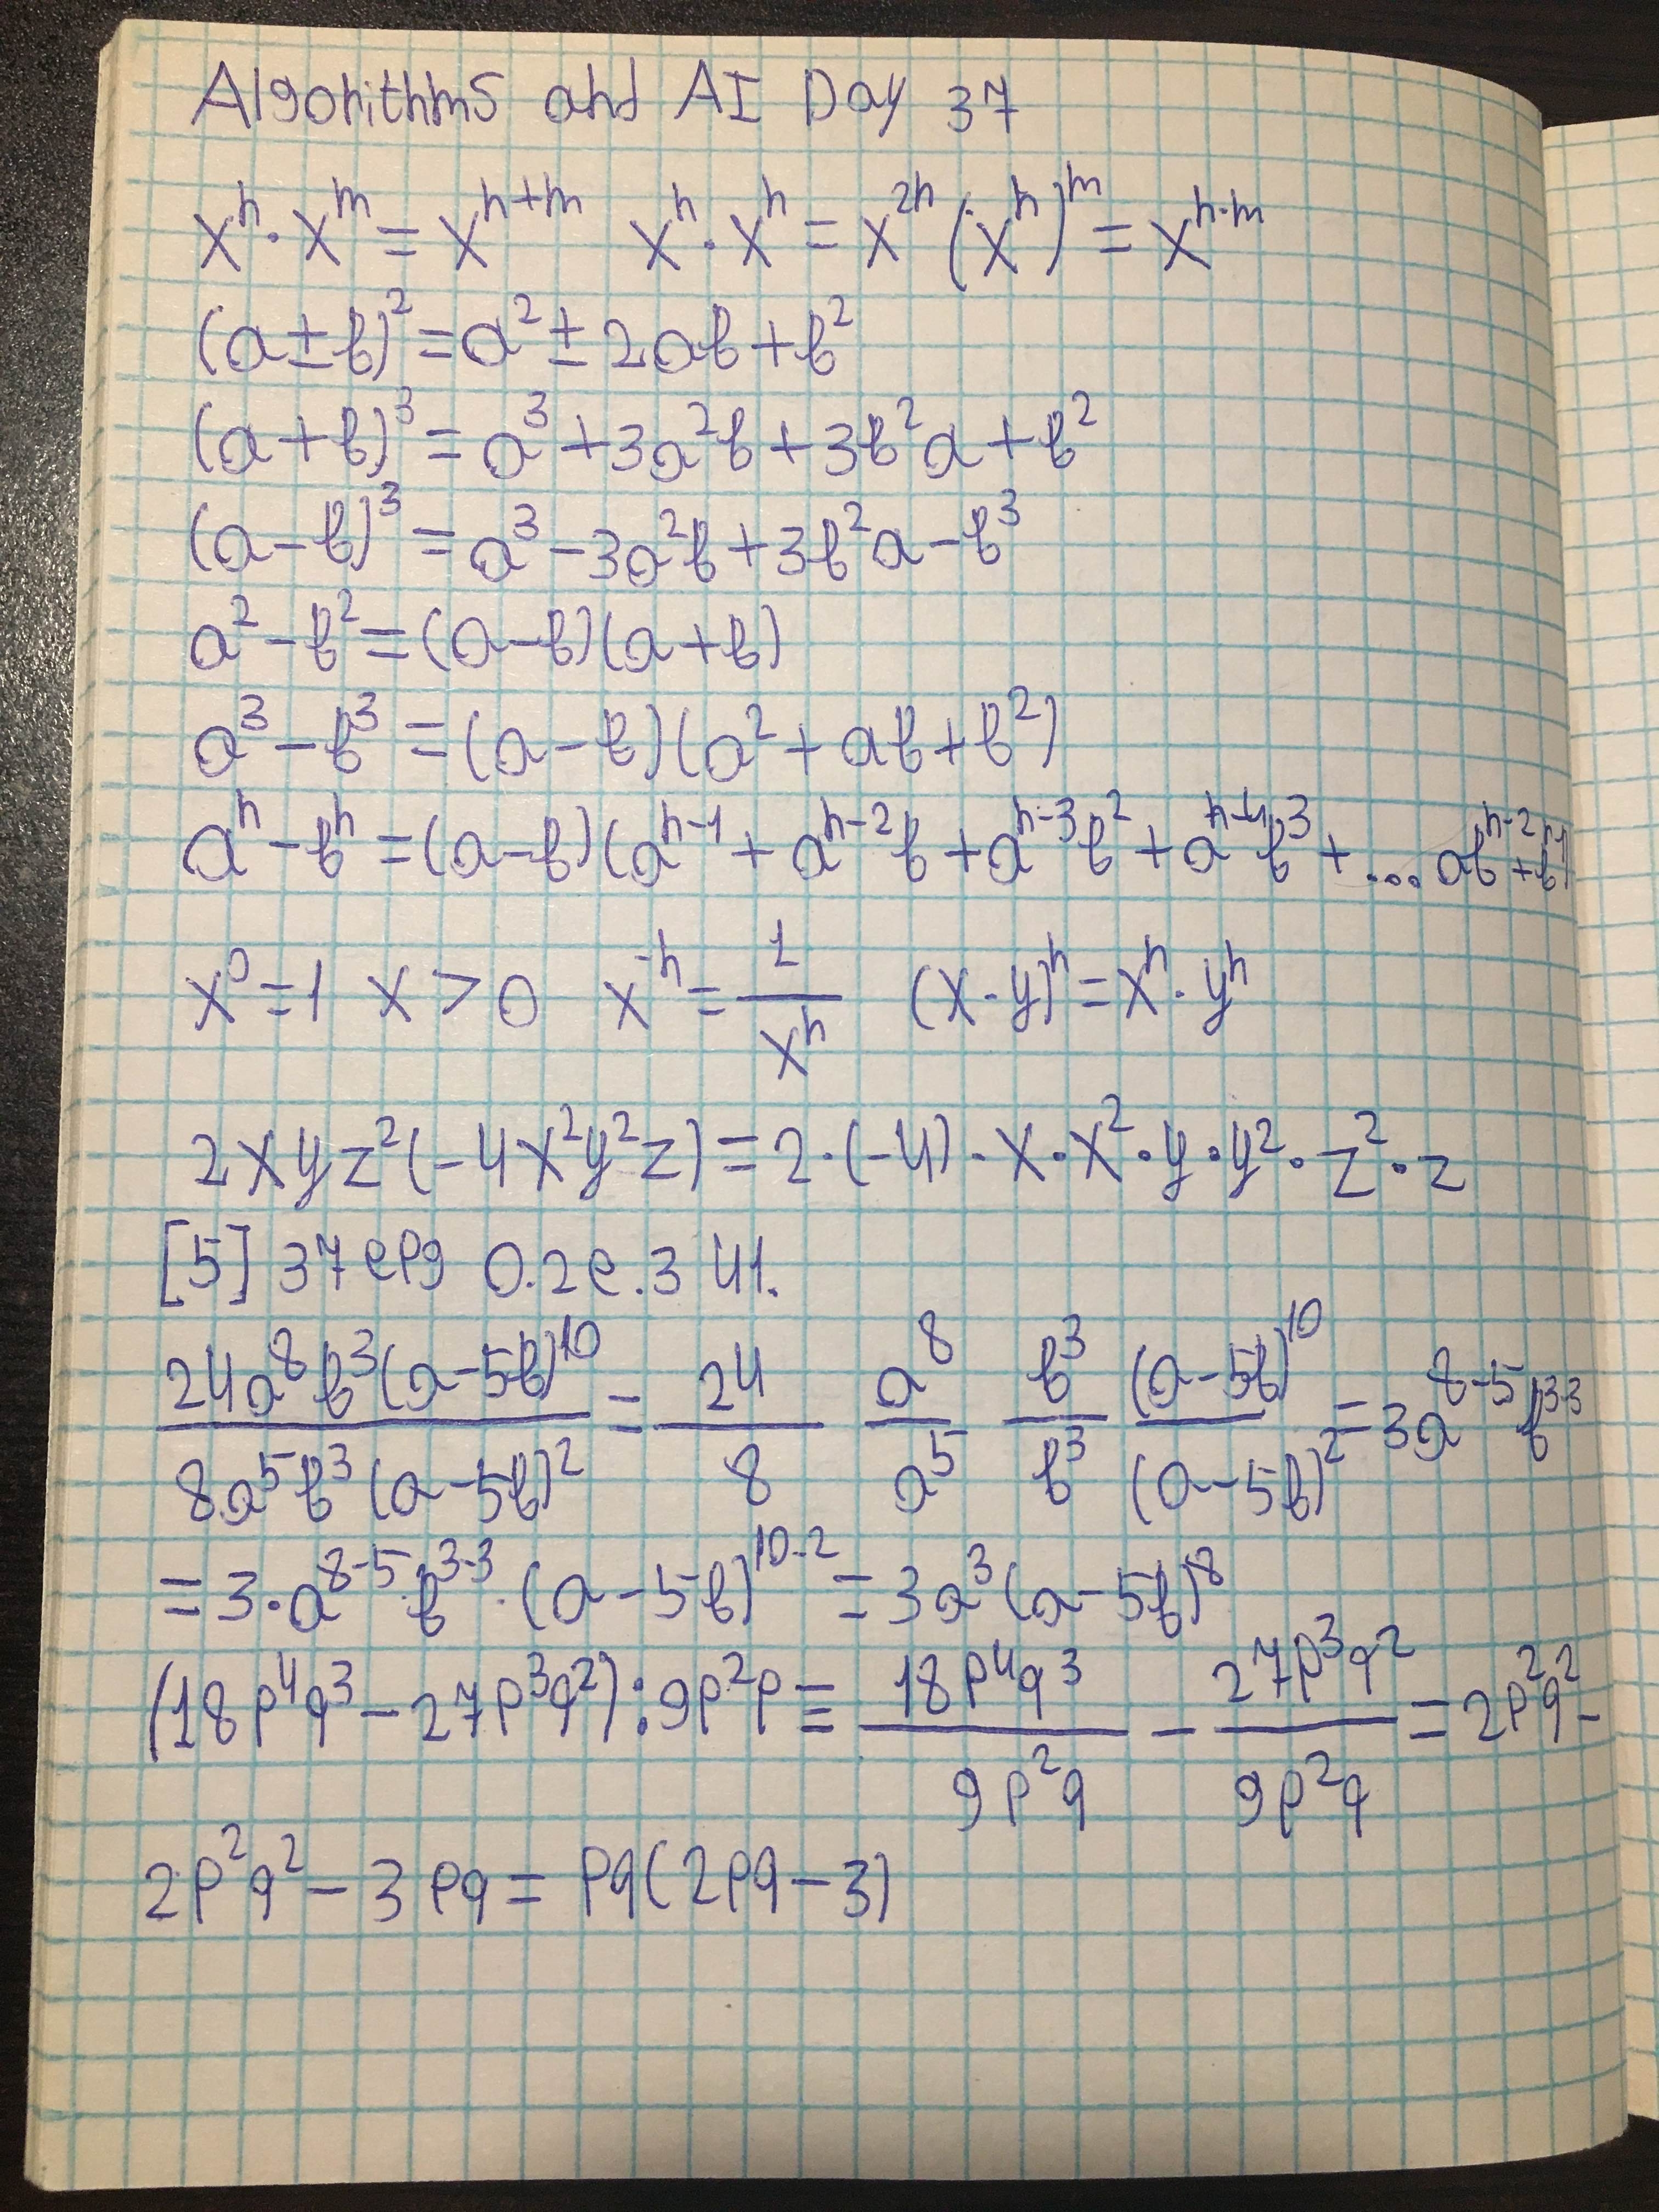 Algorithms and AI Day 37
xⁿ·xᵐ = xⁿ⁺ᵐ xⁿ·xⁿ = x²ⁿ (xⁿ)ᵐ = xⁿ·ᵐ
(a±b)² = a² ± 2ab + b²
(a+b)³ = a³ + 3a²b + 3b²a + b²
(a-b)³ = a³ - 3a²b + 3b²a - b³
a² - b² = (a-b)(a+b)
a³ - b³ = (a-b)(a² + ab + b²)
aⁿ - bⁿ = (a-b)(aⁿ⁻¹ + aⁿ⁻²b + aⁿ⁻³b² + aⁿ⁻⁴b³ + ... abⁿ⁻² + bⁿ⁻¹)
x⁰ = 1 x > 0 x⁻ⁿ = 1/xⁿ (x·y)ⁿ = xⁿ·yⁿ
2xyz²(-4x²y²z) = 2·(-4)·x·x²·y·y²·z²·z
[5] 37 epg 0.2e.3 41.
24a⁸b³(a-5b)¹⁰/8a⁵b³(a-5b)² = 24/8 a⁸/a⁵ b³/b³ (a-5b)¹⁰/(a-5b)² = 3a⁸⁻⁵b³⁻³
= 3·a⁸⁻⁵·b³⁻³·(a-5b)¹⁰⁻² = 3a³(a-5b)⁸
(18p⁴q³ - 27p³q²):9p²p = 18p⁴q³/9p²q - 27p³q²/9p²q = 2p²q² -
2p²q² - 3pq = pq(2pq - 3)